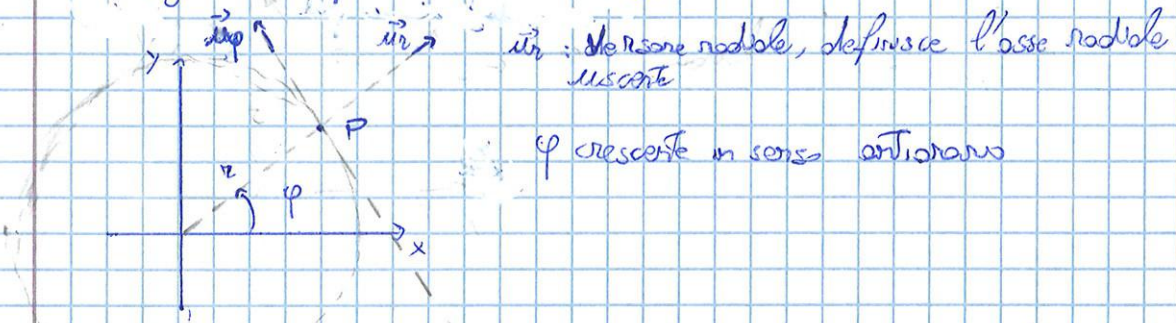 y
u⃗φ
u⃗r
u⃗r : versore radiale, definisce l'asse radiale
uscente
P
φ crescente in senso antiorario
r
φ
x